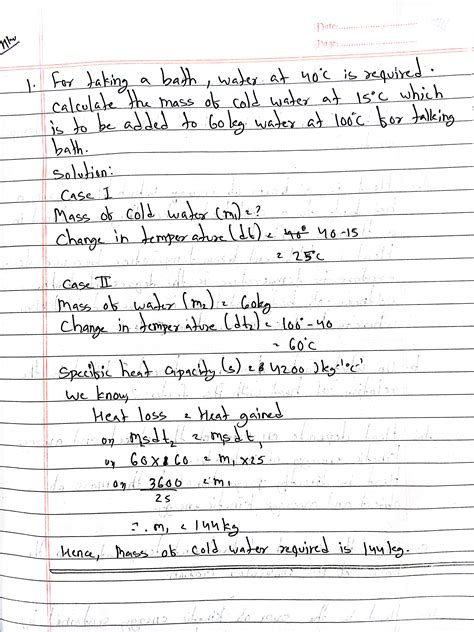 Date:
Page:
1. For taking a bath, water at 40°C is required.
calculate the mass of cold water at 15°C which
is to be added to 60kg water at 100°C for talking
bath.
Solution:
Case I
Mass of cold water (m₁) = ?
Change in temperature (dt₁) = 40-15
= 25°C
Case II
Mass of water (m₂) = 60kg
Change in temperature (dt₂) = 100-40
= 60°C
Specific heat capacity (s) = 4200 Jkg⁻¹°C⁻¹
We know,
Heat loss = Heat gained
or, msdt₂ = msdt₁
or, 60×60 = m₁×25
or, 3600/25 = m₁
∴ m₁ = 144kg
Hence, Mass of cold water required is 144kg.